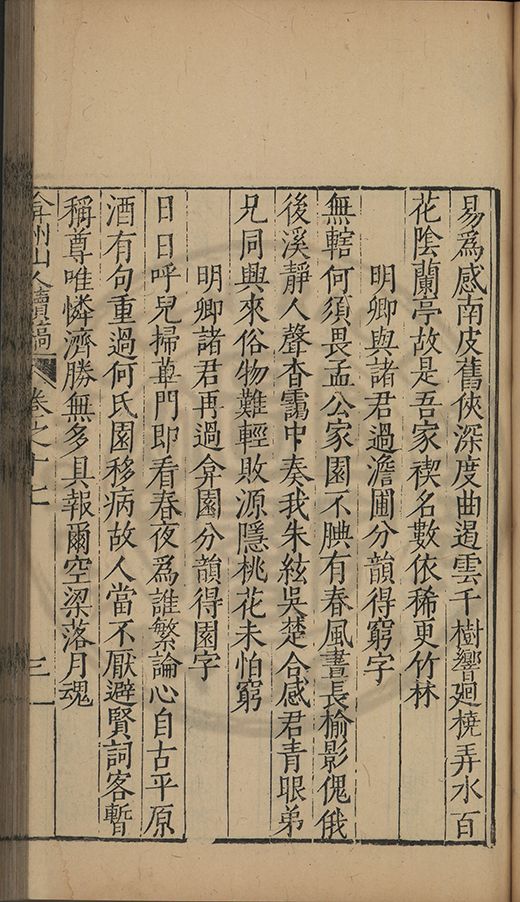 易爲感南皮舊俠深度曲遏雲千樹響廻橈弄水百
花陰蘭亭故是吾家禊名數依稀更竹林
明卿與諸君過澹圃分韻得窮字
無轄何須畏孟公家園不腆有春風晝長榆影傀俄
後溪靜人聲杳靄中奏我朱絃吳楚合感君青眼弟
兄同興來俗物難輕敗源隱桃花未怕窮
明卿諸君再過弇園分韻得園字
日日呼兒掃蓽門即看春夜爲誰繁論心自古平原
酒有句重過何氏園移病故人當不厭避賢詞客暫
稱尊唯憐濟勝無多具報爾空梁落月魂
弇州山人續稿 卷之十七 三